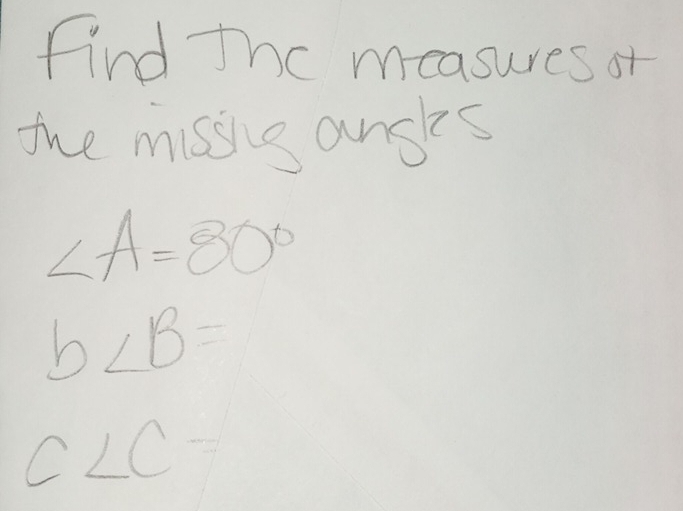 Find The measures of
the missing angles
∠A=80°
b∠B=
C∠C=